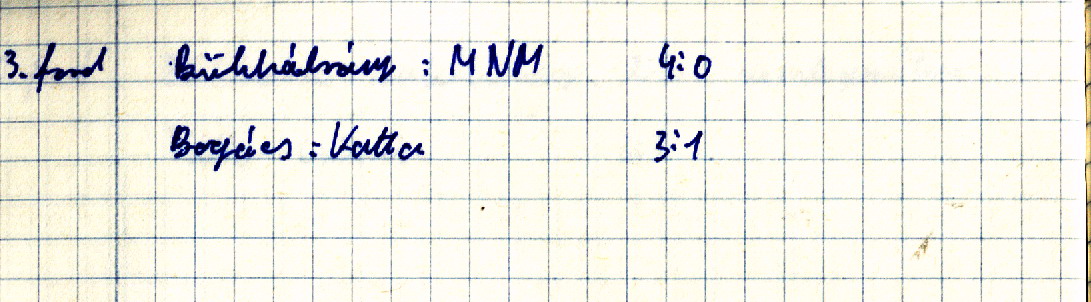 3. ford Bükkábrány : MNM 4:0
Bogács : Vatta 3:1